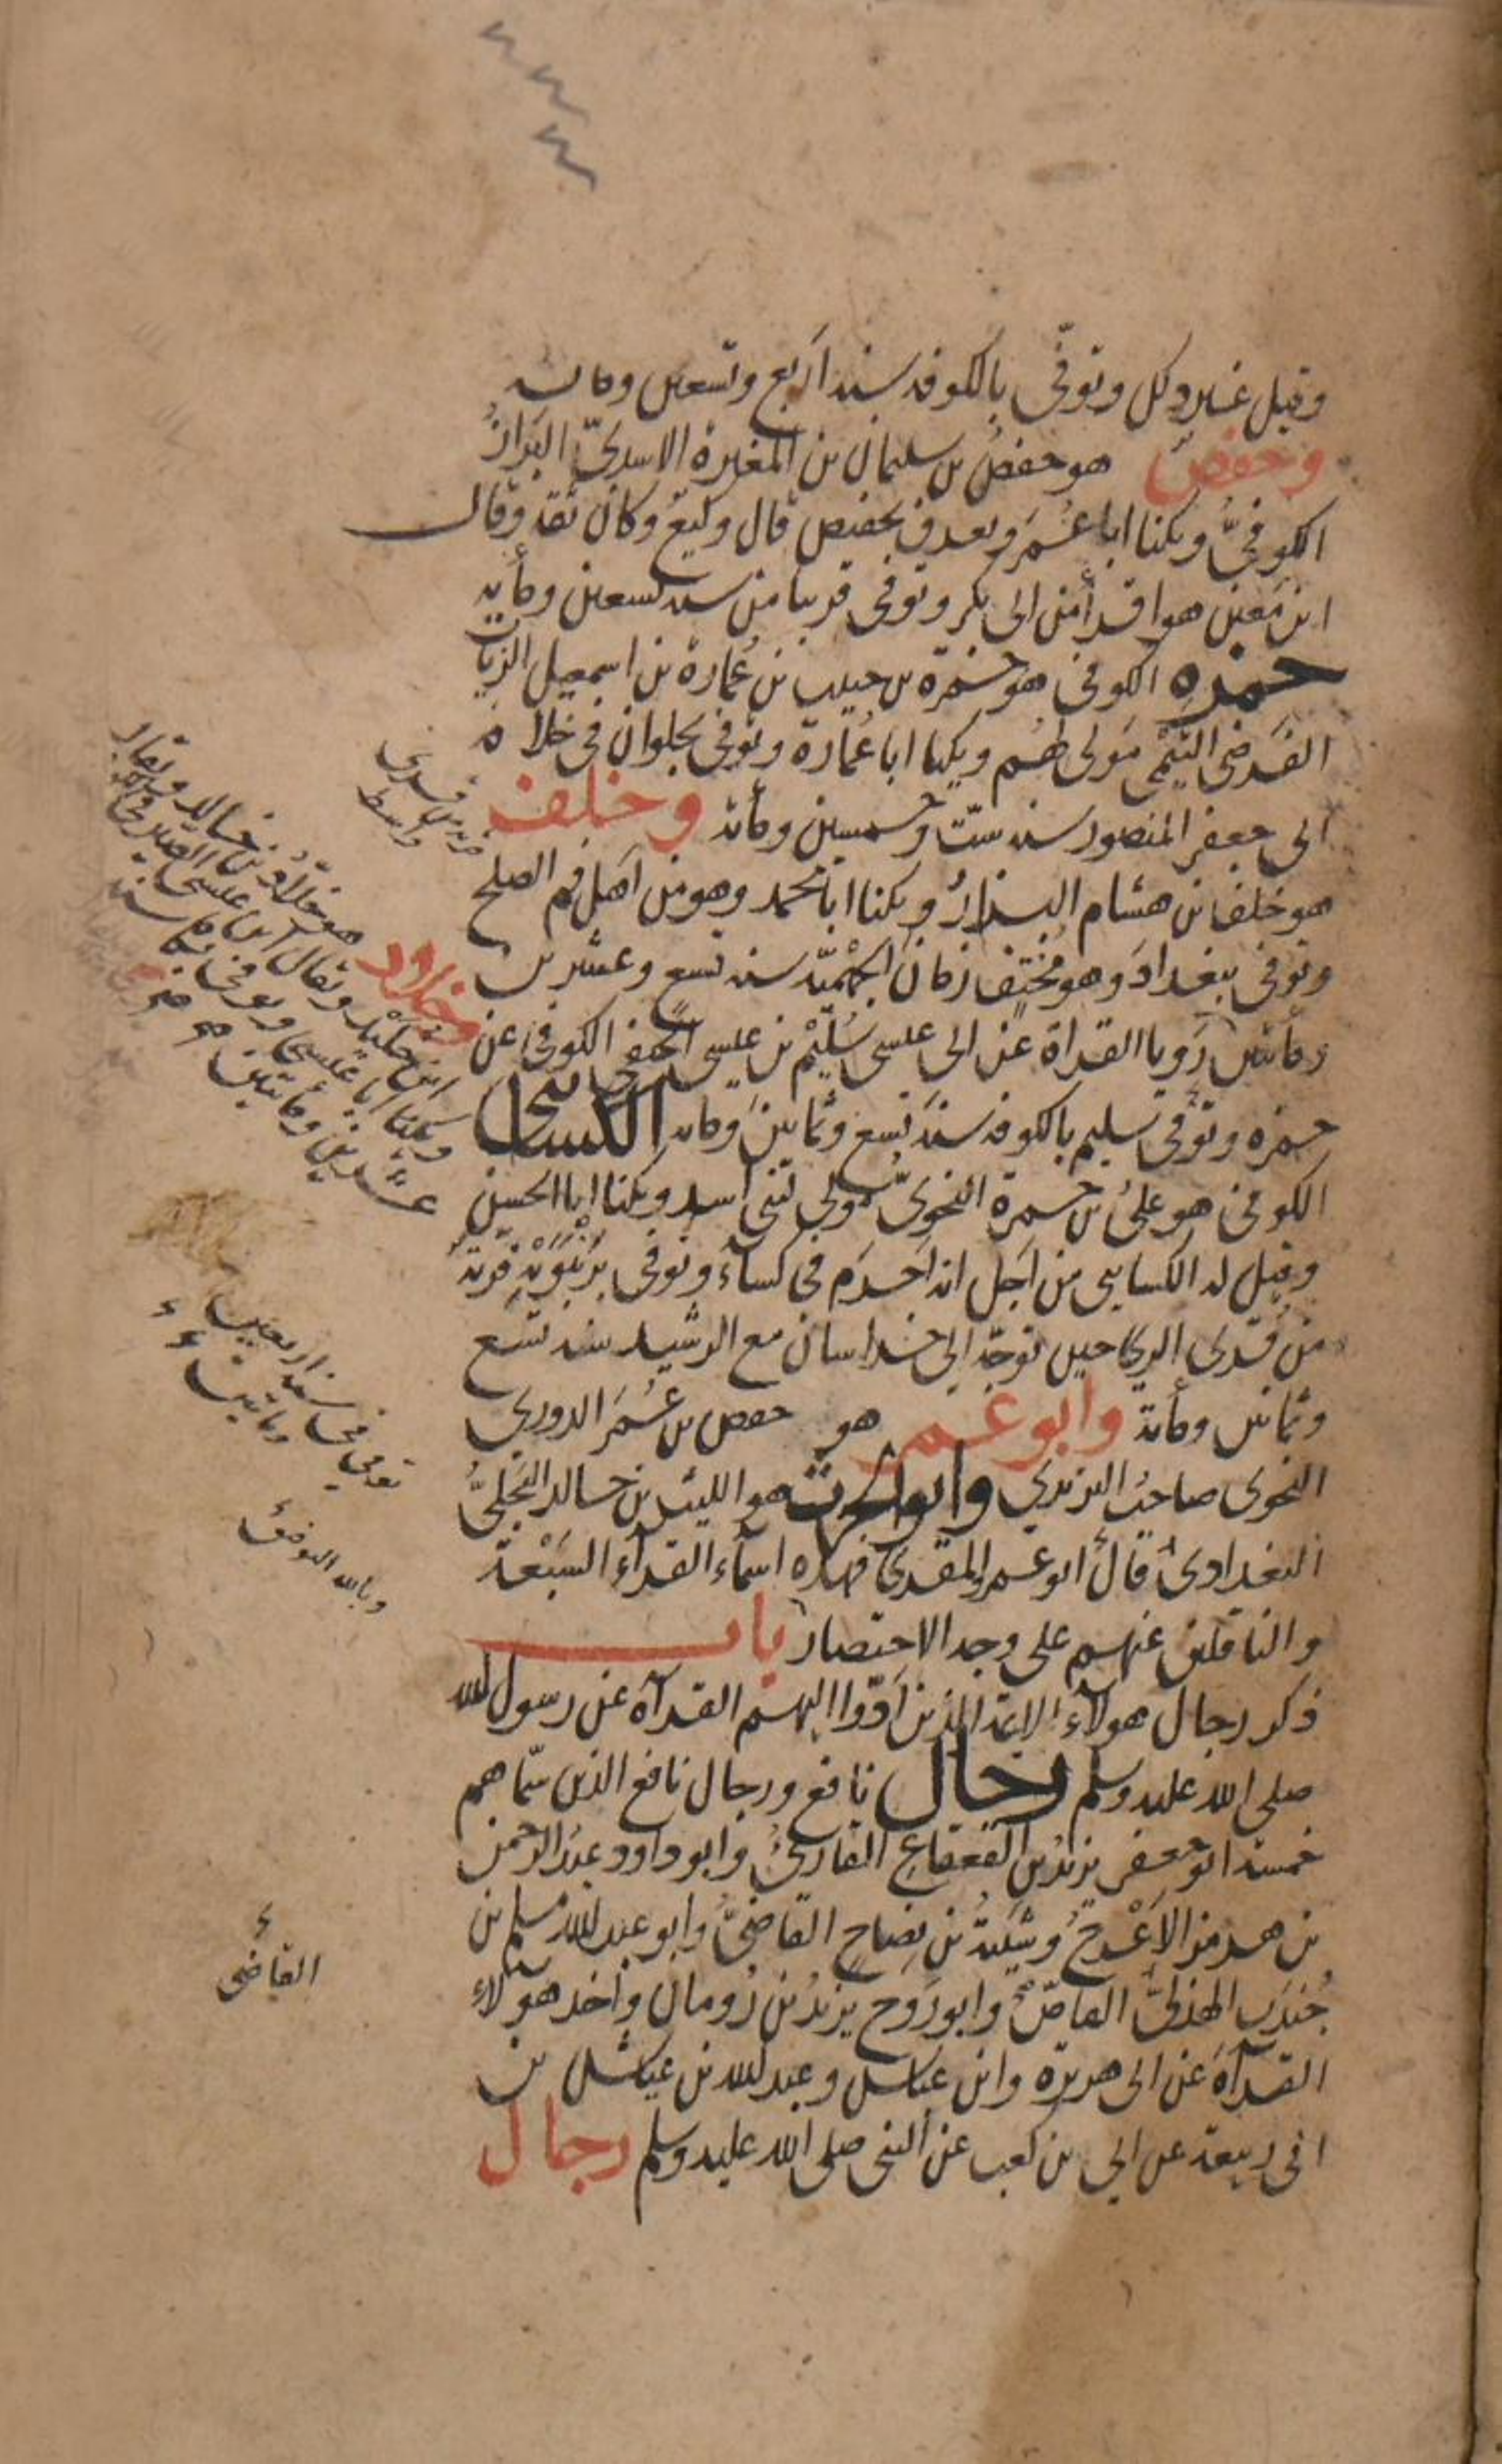 وقيل غير ذلك وتوفّي بالكوفه سنه اربع وتسعين ومايه
وحفص هو حفصُ بن سليمان بن المغيرة الاسديّ البزازُ
الكوفيُّ ويكنا ابا عُمَر ويعرف بحفيص قال وكيعٌ وكان ثقة وقال
ابن مَعين هو اقرأ من ابى بكر وتوفى قريبا من سنه تسعين ومأيه
حمزه الكوفى هو حمزة بن حبيب بن عُمارة بن اسمعيل الزيات
الفَرَضى التَيْمى مَولى لهُم ويكنا ابا عُمَارة وتوفى بحلوان فى خلافة
ابى جعفر المنصور سنه ستّ وخمسين ومأية وخلف
هو خلف بن هشام البزارُ ويكنا ابا محمد وهو من اَهل فم الصلح
وتوفى ببغدادَ وهو مُختفٍ زمان الجَهْميّة سنه تسع وعشرين
ومأتين رَويا القراة عن ابى عيسى سُلَيْم بن عيسى الحنفى الكوفى عن
حمزه وتوُفى سليم بالكوفه سنة تسع وثمانين ومايه الكسائى
الكوفى هو علىُ بن حمزة النحوىُّ مولى لبنى اسد ويكنا ابا الحسن
وقيل له الكسايى من اَجل انه اَحرَم فى كساءٍ وتوفى برَنْبَوَيْهِ قريةٌ
من قرى الرى حين توجّه الى خراسان مع الرشيد سنه تسع
وثمانين ومأية وابو عمر هو حفص بن عُمَر الدورى
النحوى صاحبُ اليزيدى وابو الحرث هو الليث بن خالد البَجَلىُّ
البغدادىُ قالَ ابو عمرو المقرى فهذه اسماء القرآء السَبْعة
والناقلين عنهم على وجه الاختصار باب
ذكر رجال هولاء الايمة الذين اَدّوا اليهم القرآة عن رسول الله
صلى الله عليه وسلم رجال نافع ورجال نافع الذين سمّاهم
خمسة ابو جعفر يزيدُ بن القعقاع القارىُ وابو داود عبدُ الرحمن
بن هرمز الاَعْرجُ وشَيْبَةُ بن نِصاحٍ القَاضىُّ وابو عبد الله مسلم بن
جُندَب الهذلىُّ القاصُّ وابو رَوح يزيدُ بن رُومان واخذ هولاء
القرآةَ عن ابى هريرة وابن عباس وعبد الله بن عياش بن
ابى ربيعة عن ابى بن كعب عن النبى صلى الله عليه وسلم رجال
واسط
وخلاد هو خلاّدُ بن خالد ويقال
ابن خليد ويقال ابن عيسى الصيرفى
ويكنا ابا عيسى وتوفى بها سنه
عشرين ومائتين
توفى فى سنه اربعين
ومايتين
وبالله التوفيق
القاضى